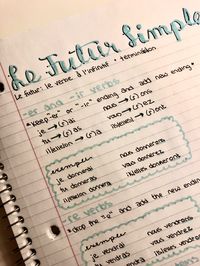 Le Futur Simple
Le futur: le verbe à l'infinitif + terminaison
-er and -ir verbs
*Keep "-er" or "-ir" ending and add new ending*
je → (r)ai nous → (r)ons
tu → (r)as vous → (r)ez
il/elle/on → (r)a ils/elles → (r)ont
exemples
je donnerai nous donnerons
tu donneras vous donnerez
il/elle/on donnera ils/elles donneront
-re verbs
*drop the "e" and add the new ending
exemples
je vendrai nous vendrons
tu vendras vous vendrez